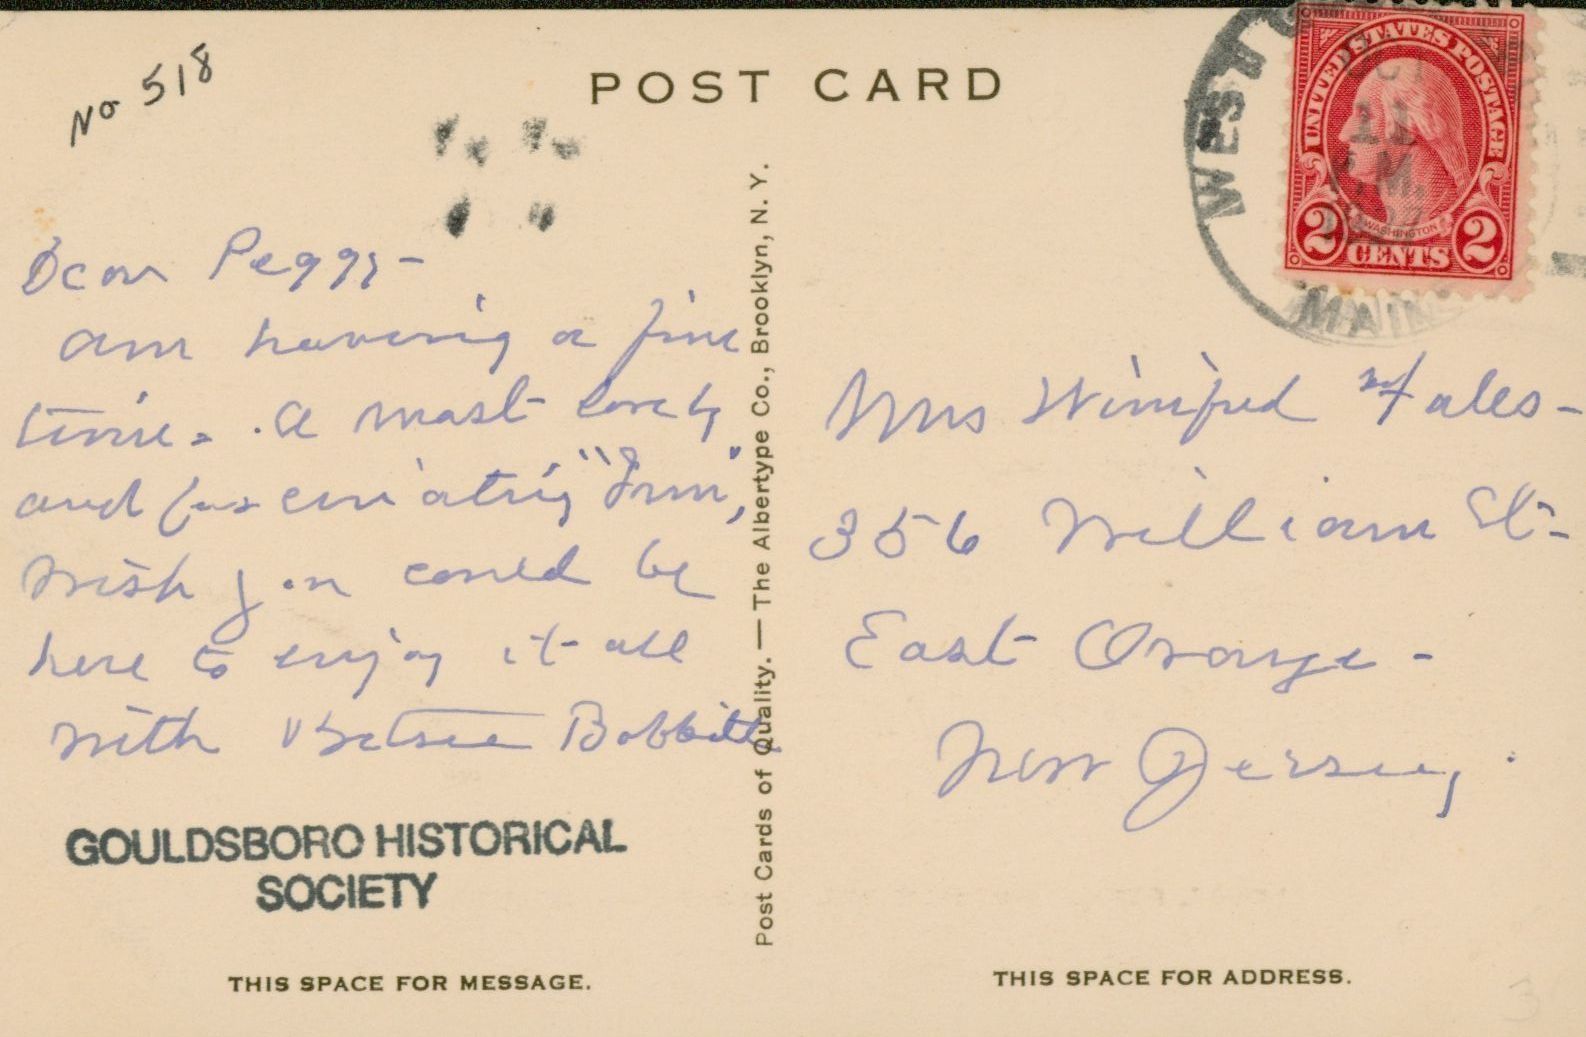 No 518
POST CARD
WEST
MAINE
OCT
11
P.M.
UNITED STATES POSTAGE
WASHINGTON
2 CENTS 2
Dear Peggy-
am having a fine
time. A most lovely
and fascinating "Inn",
wish you could be
here to enjoy it all
with Betsie Bobbitt
GOULDSBORO HISTORICAL
SOCIETY
THIS SPACE FOR MESSAGE.
Post Cards of Quality. — The Albertype Co., Brooklyn, N. Y.
Mrs Winifred Fales-
356 William St-
East Orange-
New Jersey.
THIS SPACE FOR ADDRESS.